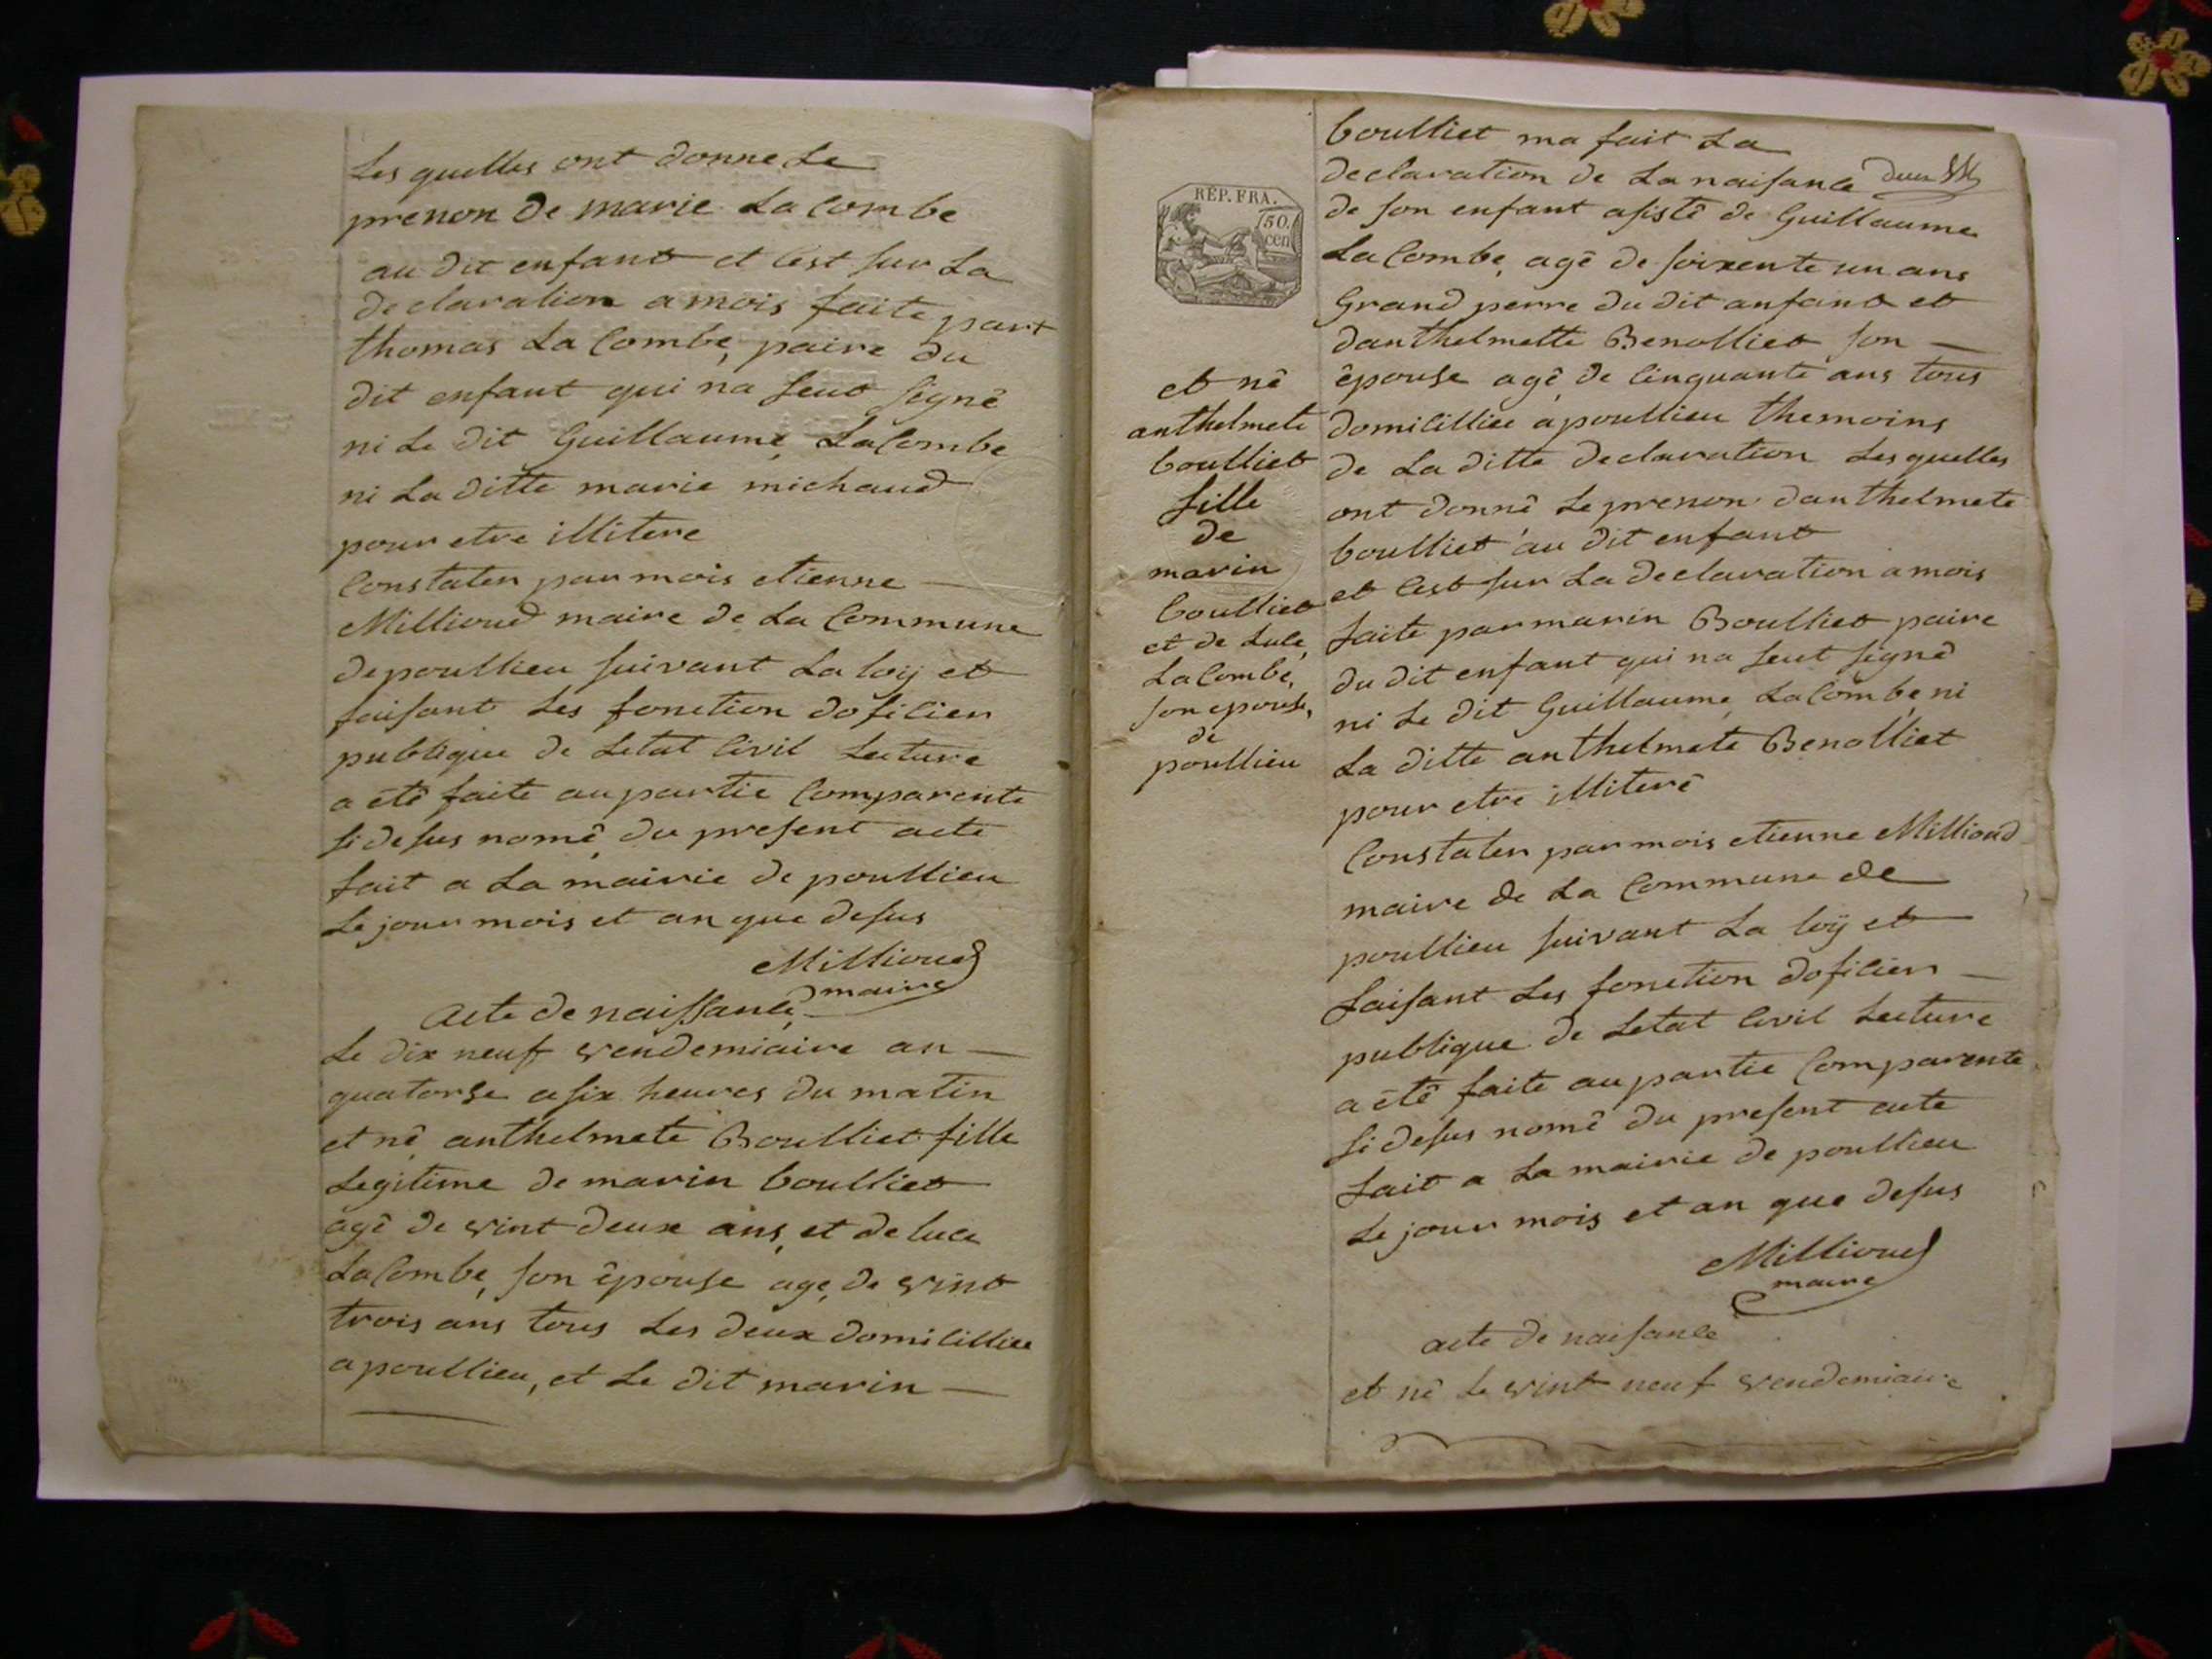 Les quelles ont donne Le
prenon de marie La Combe
au dit enfant et Cest sur La
declaration a mois faite part
thomas La Combe, paire du
dit enfant qui na seut signê
ni Le dit Guillaume, LaCombe
ni La ditte marie michaud
pour etre illitere
Constaten par mois etienne
Millioud maire de La Commune
de poullieu suivant La loÿ et
faisant Les fonction dofilien
publique de Letat Civil Lecture
a êtê faite au partie Comparente
si desus nomê du present acte
fait a La mairie de poullieu
Le jour mois et an que desus
Millioud
maire
Acte de naissance
Le dix neuf vendemiaire an
quatorse a six heures du matin
et nê anthelmete Boulliet fille
Legitime de marin boulliet
agê de vint deux ans, et de luce
LaCombe, son êpouse age, de vint
trois ans tous Les deux domicilliee
a poullieu, et Le dit marin
RÉP. FRA.
50.
cen
et nê
anthelmete
boulliet
fille
de
marin
boulliet
et de Luce,
LaCombe,
son epouse,
de
poullieu
boulliet ma fait La
declaration de La naisance
de son enfant asistê de Guillaume
LaCombe, agê de soixente un ans
Grand perre du dit anfant et
danthelmette Benolliet son
êpouse agê, de Cinquante ans tous
domicilliee a poullieu themoins
de La ditte declaration Les quelles
ont donnê Le prenon danthelmete
boulliet au dit enfant
et Cest sur La declaration a mois
faite par marin Boulliet paire
du dit enfant qui na seut signê
ni Le dit Guillaume, LaCombe, ni
La ditte anthelmete Benolliet
pour etre illiterê
Constaten par mois etienne Millioud
maire de La Commune de
poullieu suivant La loÿ et
faisant Les fonction dofilien
publique de Letat Civil Lecture
a êtê faite au partie Comparente
si desus nomê du present acte
fait a La mairie de poullieu
Le jour mois et an que desus
Millioud
maire
acte de naisance
et nê Le vint neuf vendemiaire